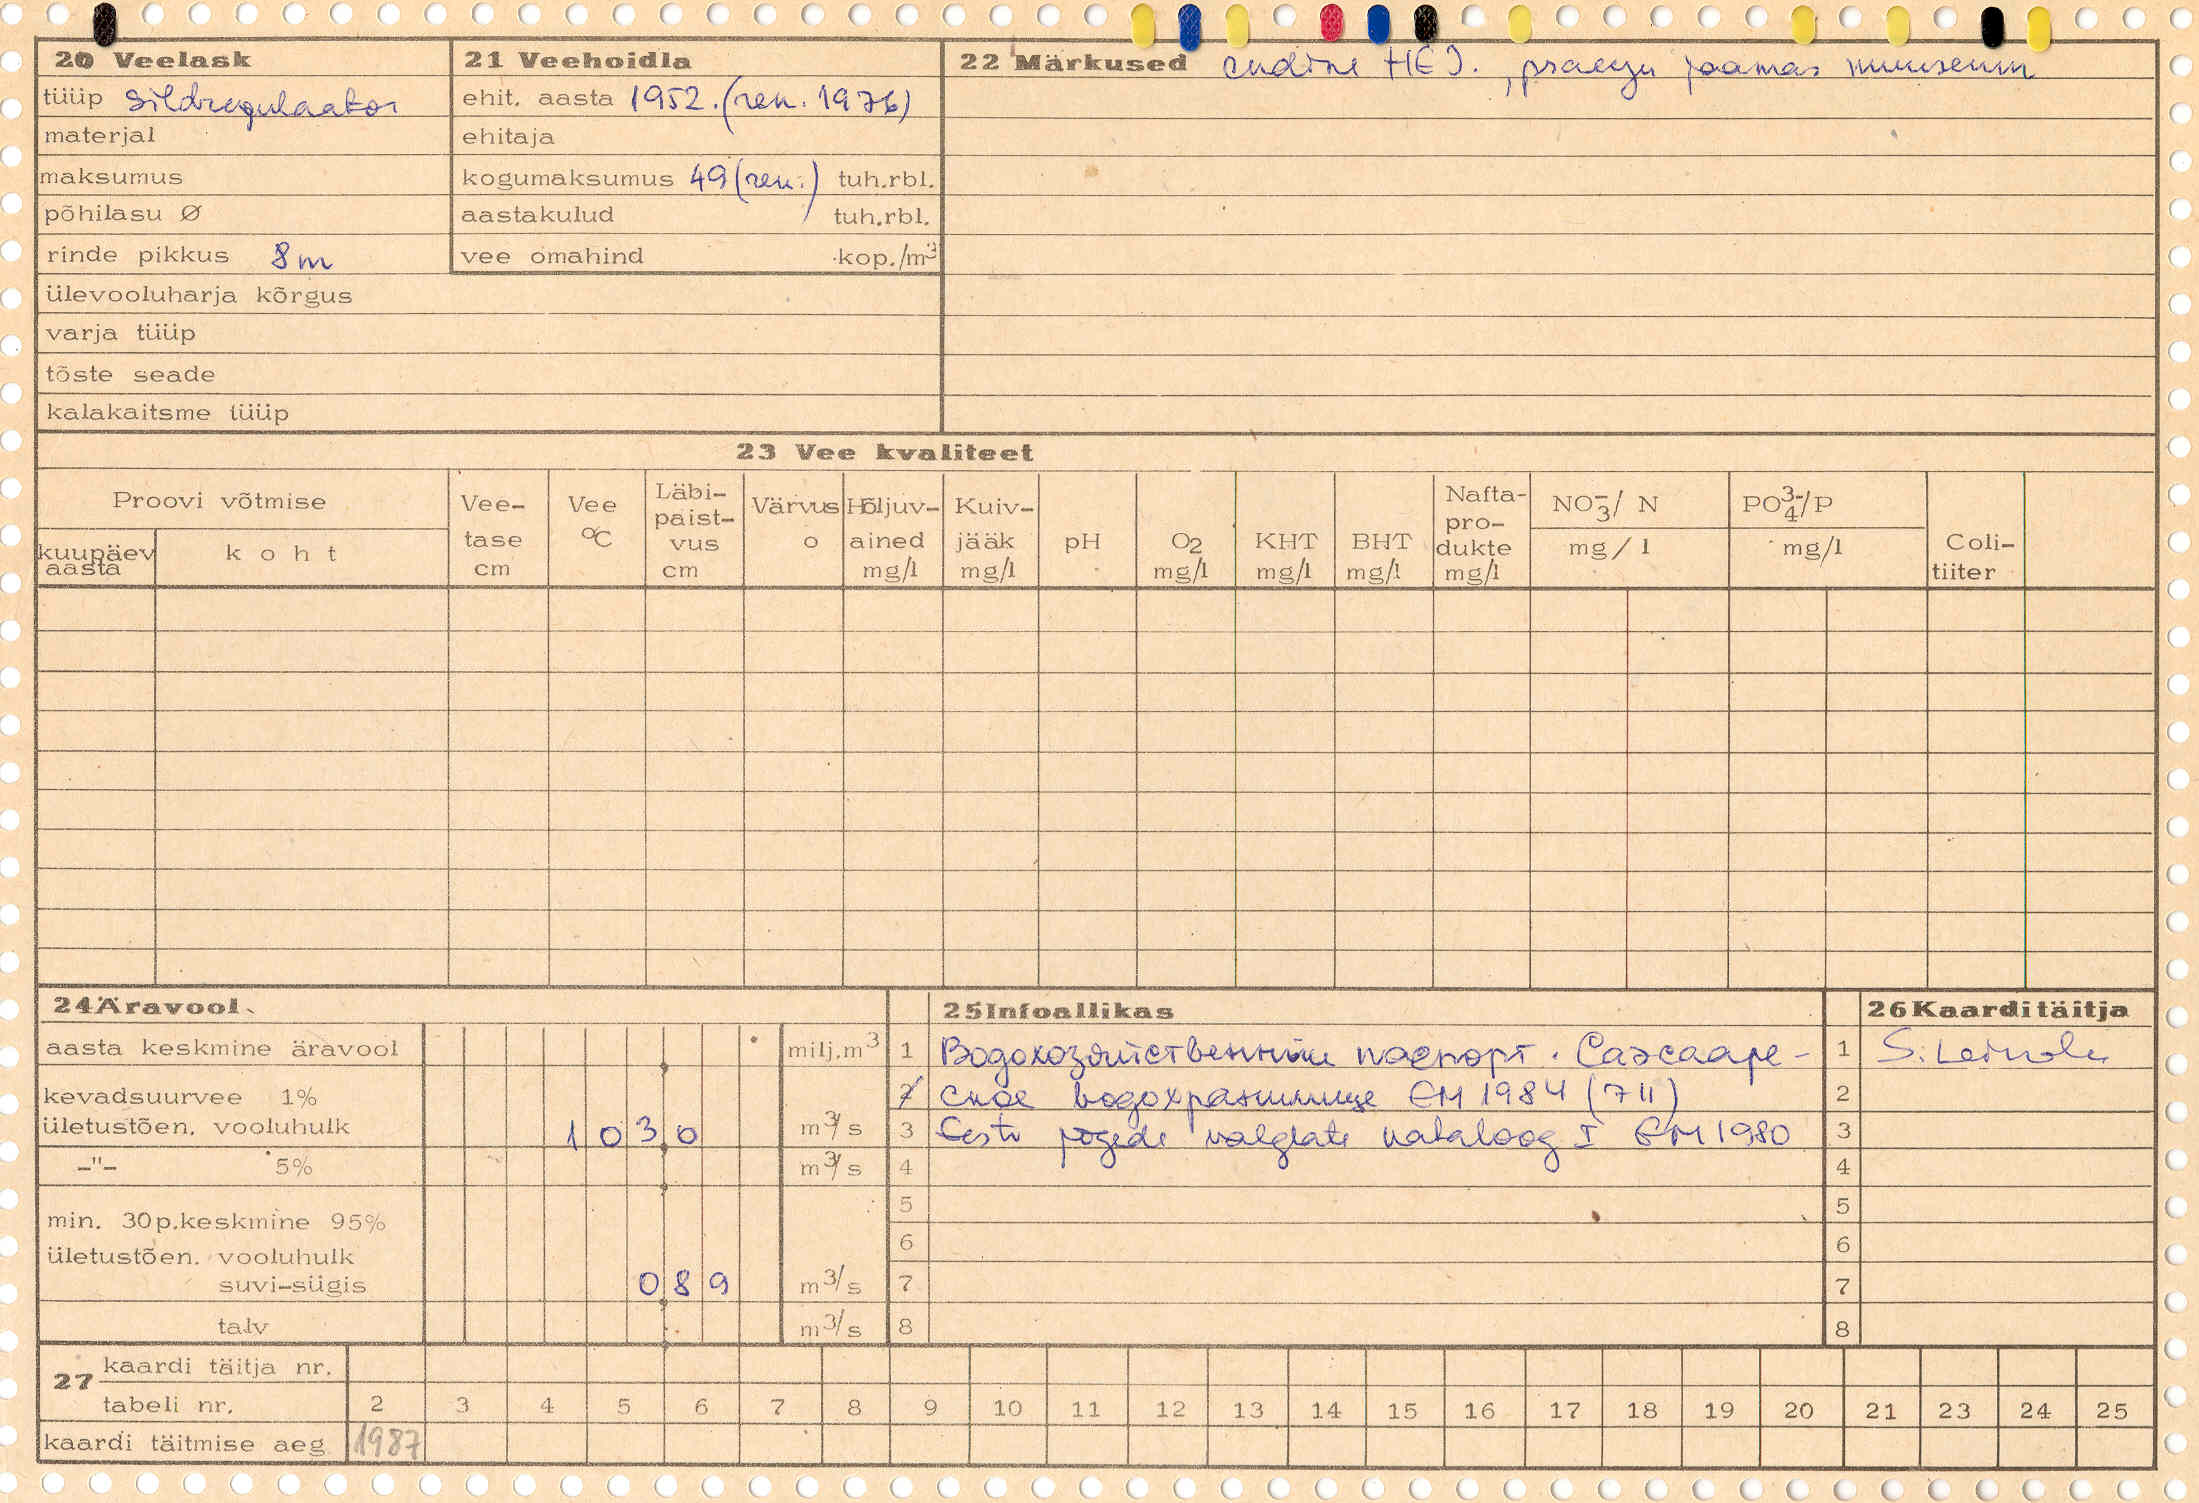 20 Veelask
tüüp sildregulaator
materjal
maksumus
põhilasu Ø
rinde pikkus 8m
ülevooluharja kõrgus
varja tüüp
tõste seade
kalakaitsme tüüp
21 Veehoidla
ehit. aasta 1952. (ren. 1976)
ehitaja
kogumaksumus 49 (ren.) tuh.rbl.
aastakulud tuh.rbl.
vee omahind kop./m3
22 Märkused endine HEJ., praegu jaamas muuseum
23 Vee kvaliteet
Proovi võtmise
kuupäev aasta
koht
Vee-
tase
cm
Vee
°C
Läbi-
paist-
vus
cm
Värvus
o
Hõljuv-
ained
mg/l
Kuiv-
jääk
mg/l
pH
O2
mg/l
KHT
mg/l
BHT
mg/l
Nafta-
pro-
dukte
mg/l
NO3-/ N
mg/l
PO4 3-/P
mg/l
Coli-
tiiter
24 Äravool
aasta keskmine äravool milj.m3
kevadsuurvee 1%
ületustõen. vooluhulk 1 0 3 0 m3/s
-"- 5% m3/s
min. 30p.keskmine 95%
ületustõen. vooluhulk
suvi-sügis 0 8 9 m3/s
talv m3/s
25 Infoallikas
1 Водохозяйственный паспорт. Саэсааре-
2 ское водохранилище EM 1984 (711)
3 Eesti jõgede valglate kataloog I EM 1980
4
5
6
7
8
26 Kaarditäitja
1 S.
2
3
4
5
6
7
8
27 kaardi täitja nr.
tabeli nr. 2 3 4 5 6 7 8 9 10 11 12 13 14 15 16 17 18 19 20 21 23 24 25
kaardi täitmise aeg 1987